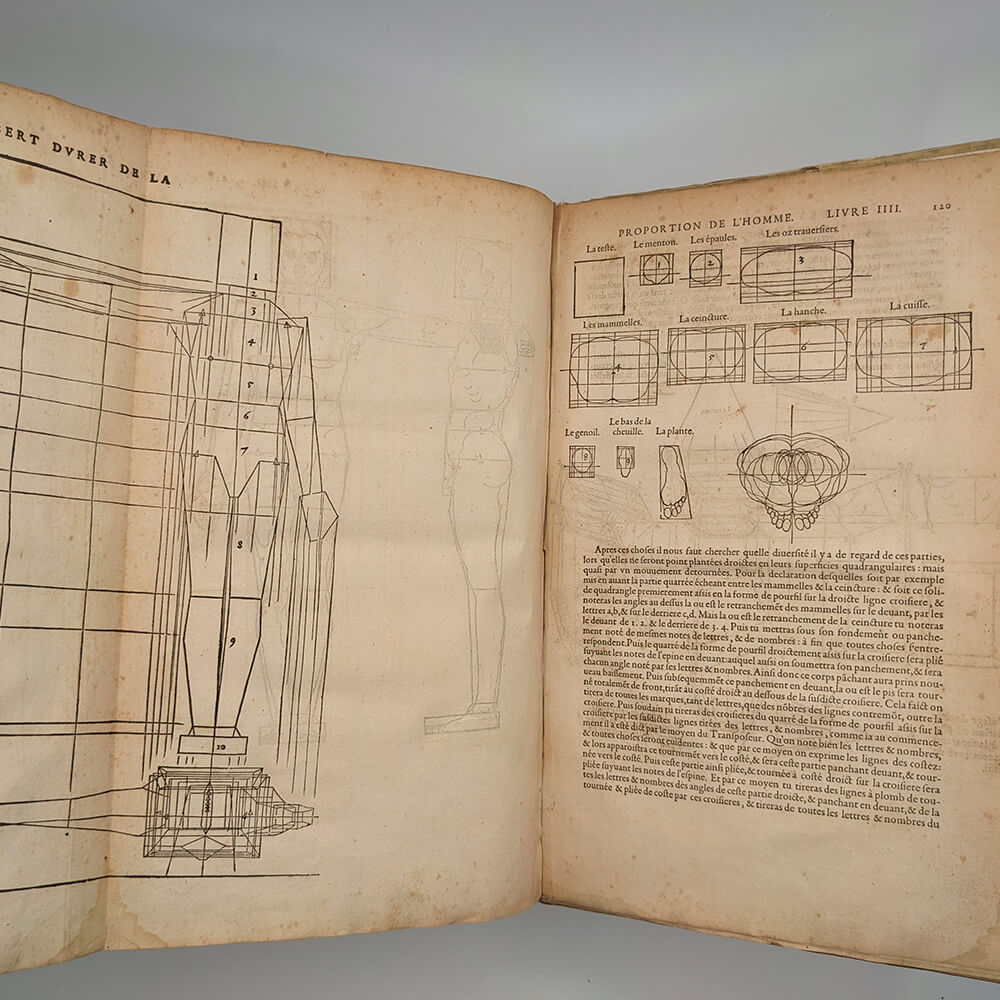 BERT DVRER DE LA
1
2
3
4
5
6
7
8
9
10
PROPORTION DE L'HOMME. LIVRE IIII. 120
La teste. Le menton. Les épaules. Les oz trauersiers.
1 2 3
Les mammelles. La ceincture. La hanche. La cuisse.
4 5 6 7
Le genoil. Le bas de la cheuille. La plante.
8 9
Apres ces choses il nous faut chercher quelle diuersité il y a de regard de ces parties,
lors qu'elles ne seront point plantées droictes en leurs superficies quadrangulaires : mais
quasi par vn mouuement detournées. Pour la declaration desquelles soit par exemple
mis en auant la partie quarrée écheant entre les mammelles & la ceincture : & soit ce soli-
de quadrangle premierement assis en la forme de pourfil sur la droicte ligne croisiere, &
noteras les angles au dessus la ou est le retranchemēt des mammelles sur le deuant, par les
lettres a,b, & sur le derriere c,d. Mais la ou est le retranchement de la ceincture tu noteras
le deuant de 1. 2. & le derriere de 3. 4. Puis tu mettras sous son fondemēt ou panche-
ment noté de mesmes notes de lettres, & de nombres : à fin que toutes choses s'entre-
respondent. Puis le quarré de la forme de pourfil droictement assis sur la croisiere sera plié
suyuant les notes de l'epine en deuant: auquel aussi on soumettra son panchement, & sera
chacun angle noté par ses lettres & nombres. Ainsi donc ce corps pāchant aura prins nou-
ueau baissement. Puis subsequemmēt ce panchement en deuant, la ou est le pis sera tour-
né totalemēt de front, tirāt au costé droict au dessous de la susdicte croisiere. Cela faict on
tirera de toutes les marques, tant de lettres, que des nōbres des lignes contremōt, outre la
croisiere. Puis soudain tu tireras des croisieres du quarré de la forme de pourfil assis sur la
croisiere par les susdictes lignes tirées des lettres, & nombres, comme ia au commence-
ment il a esté dict par le moyen du Transposeur. Qu'on note bien les lettres & nombres,
& toutes choses seront euidentes : & que par ce moyen on exprime les lignes des costez:
& lors apparoistra ce tournemēt vers le costé, & sera ceste partie panchant deuant, & tour-
née vers le costé. Puis ceste partie ainsi pliée, & tournée à costé droict sur la croisiere sera
pliée suyuant les notes de l'espine. Et par ce moyen tu tireras des lignes à plomb de tou-
tes les lettres & nombres des angles de ceste partie droicte, & panchant en deuant, & de la
tournée & pliée de coste par ces croisieres, & tireras de toutes les lettres & nombres du